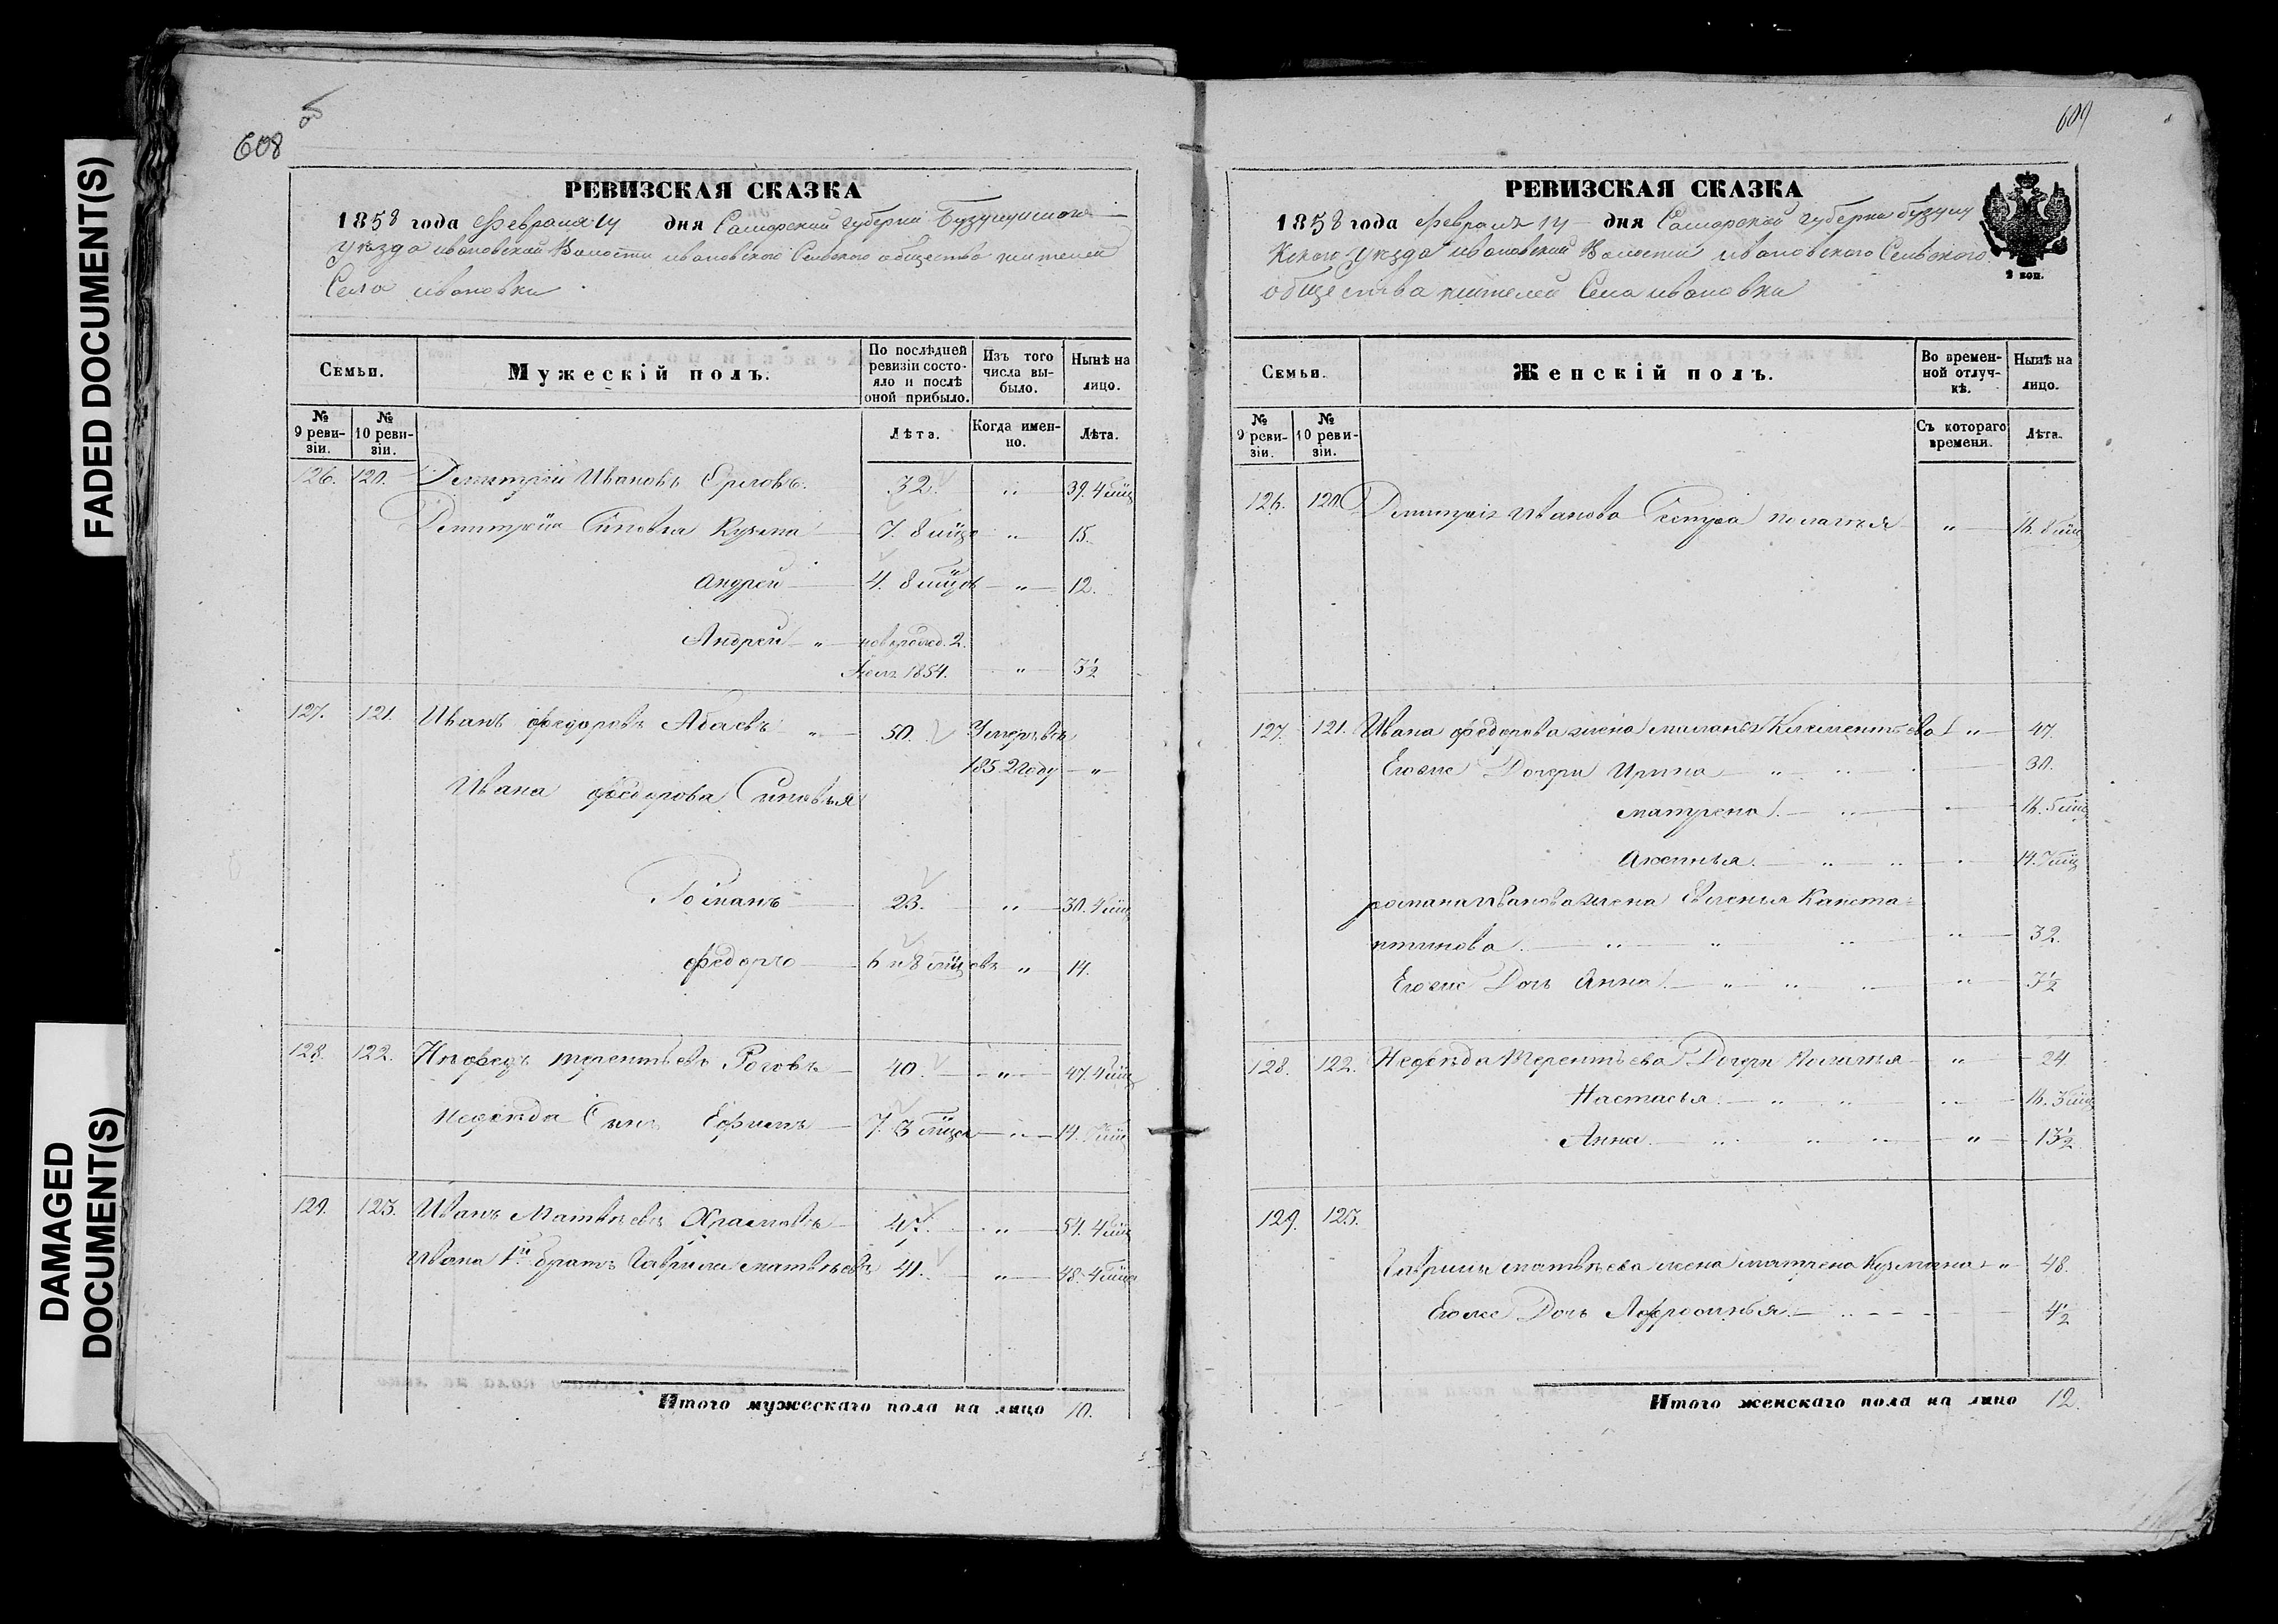 FADED DOCUMENT(S)
DAMAGED
DOCUMENT(S)
608 об
РЕВИЗСКАЯ СКАЗКА
1858 года Февраля 14 дня Самарской губернии Бузулукского
уезда ивановской Волости ивановского Сельского общества жителей
Села ивановки
Семьи.
Мужескій полъ.
По послѣдней ревизіи состояло и послѣ оной прибыло.
Изъ того числа выбыло.
Нынѣ на лицо.
№ 9 ревизіи.
№ 10 ревизіи.
Лѣта.
Когда именно.
Лѣта.
126. 120. Дмитрий Ивановъ 32. „ 39. 4 мца
Дмитрия Сыновья Кузьма 7. 8 мцов „ 15.
Андрей 4. 8 мцов „ 12.
Андрей „ 2.
1854. „ 3½
127. 121. Иванъ федоровъ Абаевъ „ 50. Умеръ въ
1852 году „
Ивана федорова Сыновья
Романъ 23. „ 30. 4 мца
федоръ 6 и 8 мцовъ „ 14.
128. 122. Нефедъ терентьевъ Роговъ 40. „ 47. 4 мца
Нефеда Сынъ Ефимъ 7. 3 мца „ 14. 7 мц
129. 123. Иванъ Матвѣевъ Храмовъ 47. „ 54. 4 мца
Ивана 1й братъ Гаврила матвѣевъ 41. „ 48. 4 мца
Итого мужескаго пола на лицо 10.
609
РЕВИЗСКАЯ СКАЗКА
1858 года Февраля 14 дня Самарской губернии бузулу
кского уезда ивановской Волости ивановского Сельского
общества жителей Села ивановки
2 коп.
Семьи.
Женскій полъ.
Во временной отлучкѣ.
Нынѣ на лицо.
№ 9 ревизіи.
№ 10 ревизіи.
Съ котораго времени.
Лѣта.
126. 120. Дмитрия Иванова Сестра палагья „ 16. 8 мц
127. 121. Ивана федорова жена маланья Клементьева „ 47.
Егоже Дочери Ирина „ 30.
матрена „ 16. 5 мц
Аксинья „ 14. 7 мц
романа иванова жена Евгенья Канста-
нтинова „ 32.
Егоже Дочь Анна „ 3½
128. 122. Нефеда Терентьева Дочери Палагья „ 24.
Настасья „ 16. 3 мц
Анна „ 13½
129. 123.
Гаврилы матвѣева жена матрена Кузмина „ 48.
Егоже Дочь Афросинья 4½
Итого женскаго пола на лицо 12.